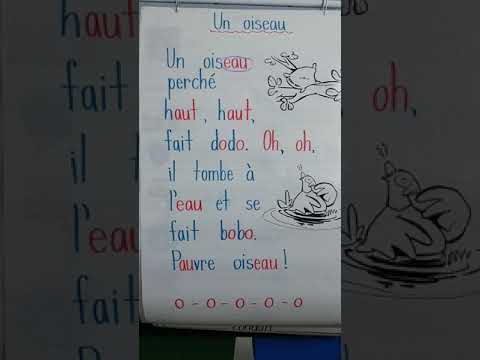 Un oiseau
Un oiseau
perché
haut, haut,
fait dodo. Oh, oh,
il tombe à
l'eau et se
fait bobo.
Pauvre oiseau !
o - o - o - o - o